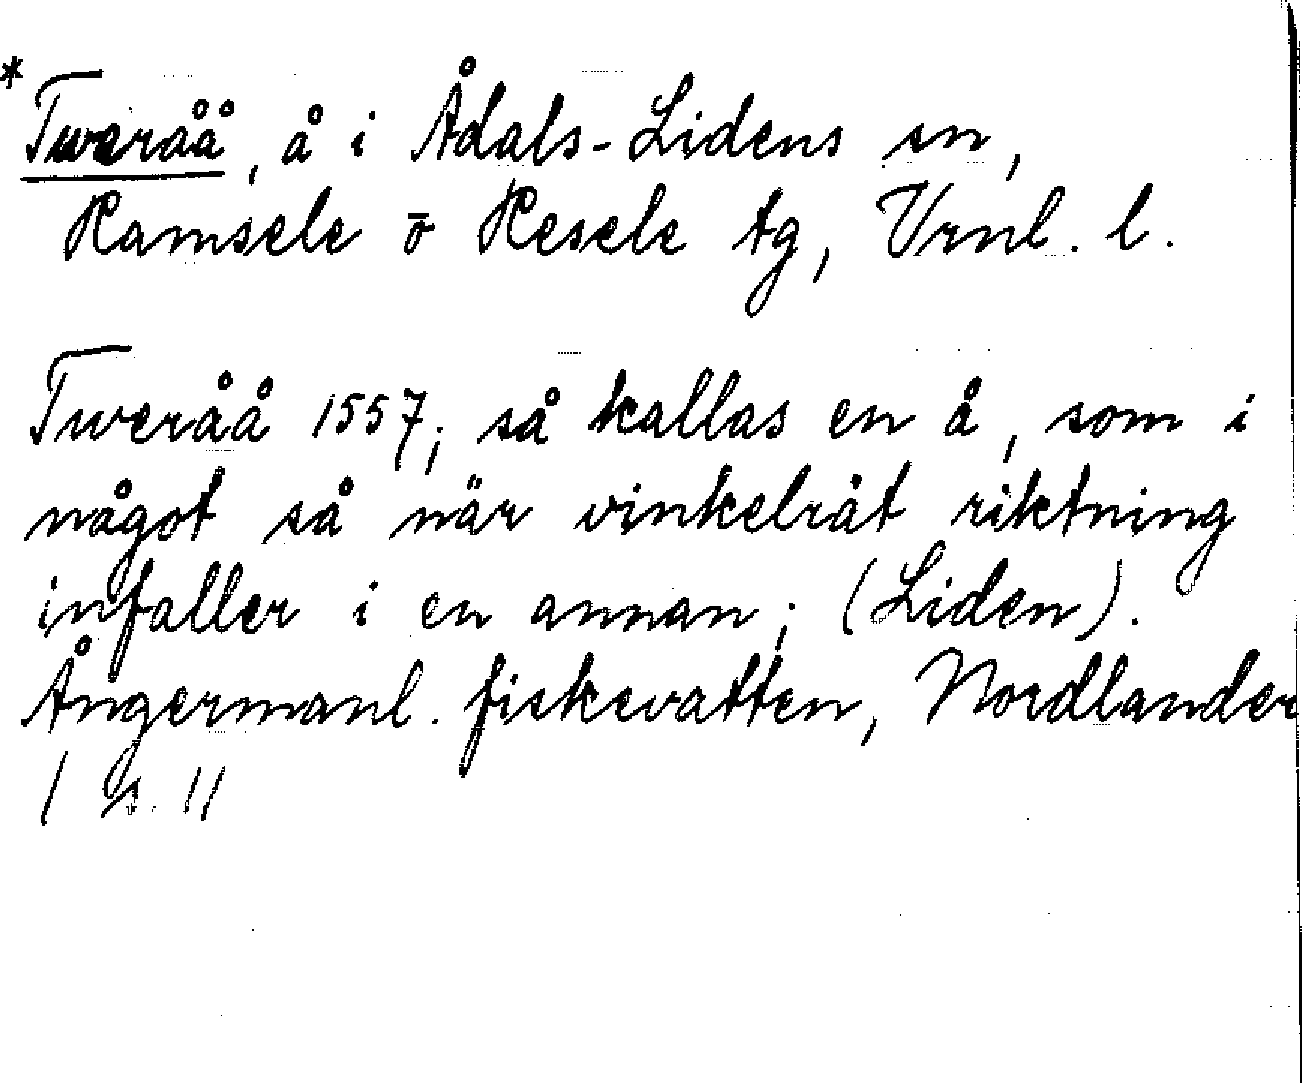 *Tweråå, å i Ådals-Lidens sn,
Ramsele o Resele tg, Vrnl. l.
Tweråå 1557; så kallas en å, som i
något så när vinkelrät riktning
infaller i en annan; (Liden).
Ångermanl. fiskevatten, Nordlander
I s. 11